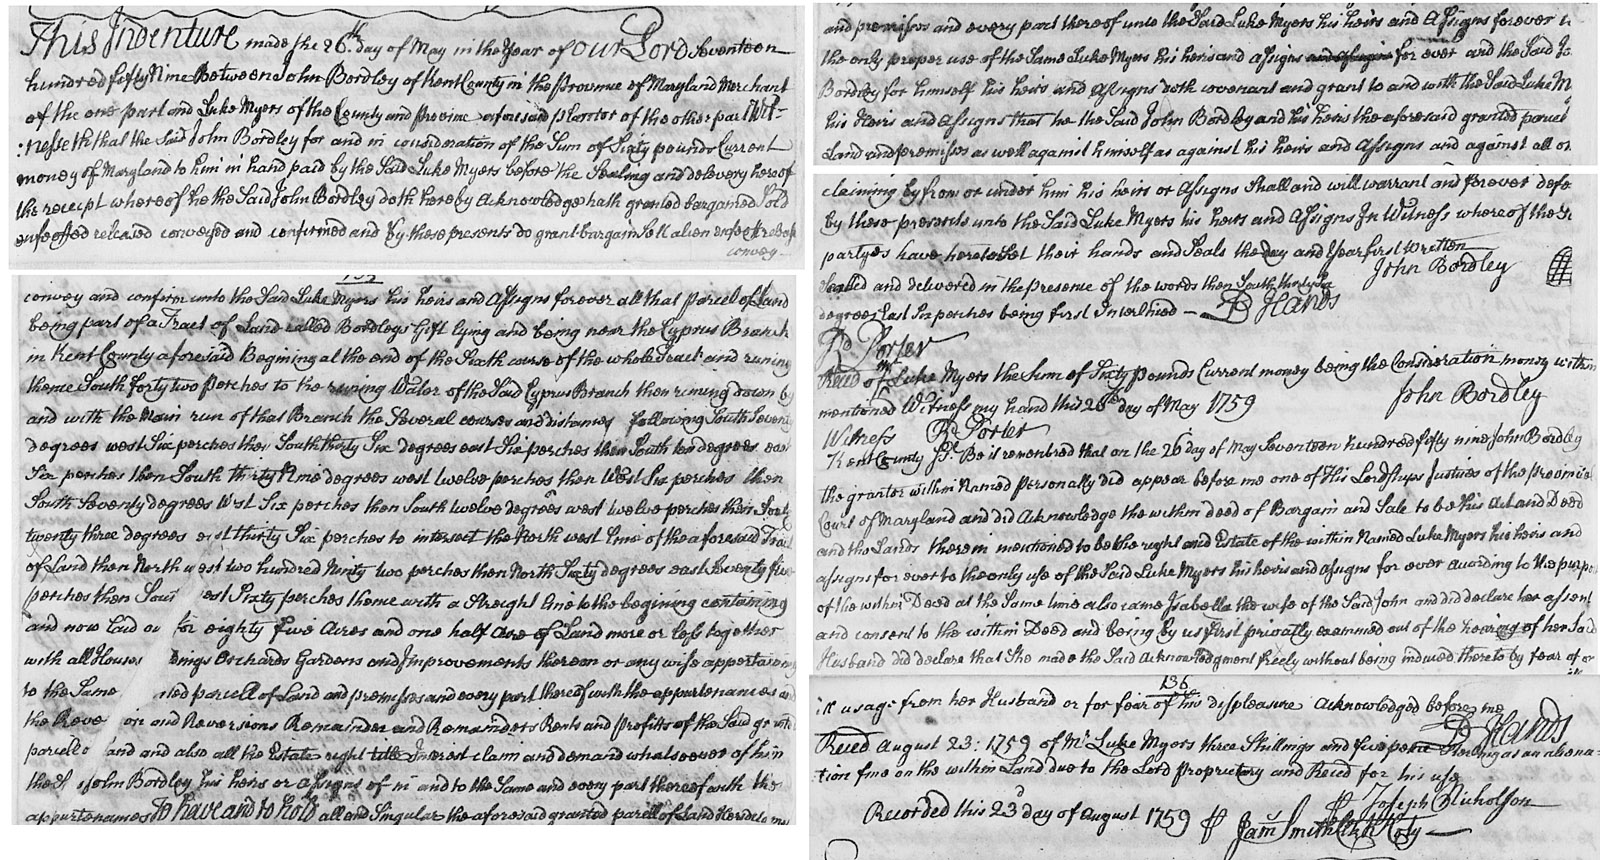 This Indenture made the 26th day of May in the Year of our Lord Seventeen
hundred fifty Nine Between John Bordley of Kent County in the Province of Maryland Merchant
of the one part and Luke Myers of the County and Province aforesaid planter of the other part Wit-
:nesseth that the Said John Bordley for and in consideration of the Sum of Sixty pounds Current
money of Maryland to him in hand paid by the Said Luke Myers before the Sealing and delevery hereof
the receipt whereof he the Said John Bordley doth hereby Acknowledge hath granted bargained Sold
enfeoffed released conveyed and confirmed and by these presents do grant bargain Sell alien enfeoff release
convey
135
convey and confirm unto the Said Luke Myers his heirs and Assigns forever all that parcel of Land
being part of a Tract of Land called Bordleys Gift lying and being near the Cyprus Branch
in Kent County aforesaid Begining at the end of the Sixth course of the whole Tract and runing
thence South forty two perches to the runing Water of the Said Cyprus Branch then runing down by
and with the Main run of that Branch the Several courses and distances following South Seven
degrees west Six perches then South thirty Six degrees east Six perches then South ten degrees east
Six perches then South thirty Nine degrees west twelve perches then West Six perches then
South Seventy degrees West Six perches then South twelve degrees west twelve perches then South
twenty three degrees east thirty Six perches to intersect the North west line of the aforesaid Tract
of Land then North west two hundred Ninty two perches then North Sixty degrees east Seventy five
perches then Sout est Sixty perches thence with a Streight line to the begining containing
and now laid ou for eighty five Acres and one half Acre of Land more or less together
with all Houses ings Orchards Gardens and Improvements thereon or any wise appertaining
to the Same ted parcell of Land and premisses and every part thereof with the appurtenances and
the Reve on and Reversions Remainder and Remainders Rents and profitts of the Said granted
parcell o and and also all the Estate right title Interest claim and demand whatsoever of him
the S John Bordley his heirs or Assigns of in and to the Same and every part thereof with the
appurtenances To have and to hold all and Singular the aforesaid granted parcell of Land Heredita
and premisses and every part thereof unto the Said Luke Myers his heirs and Assigns forever
the only proper use of the Same Luke Myers his heirs and Assigns and Assigns for ever and the Said Jo
Bordley for himself his heirs and Assigns doth covenant and grant to and with the Said Luke M
his Heirs and Assigns that he the Said John Bordley and his heirs the aforesaid granted parcel
Land and premisses as well against himself as against his heirs and Assigns and against all or
claiming by from or under him his heirs or Assigns Shall and will warrant and forever defe
by these presents unto the Said Luke Myers his heirs and Assigns In Witness whereof the
partyes have hereto Set their hands and Seals the day and Year first Written
John Bordley
Sealed and delivered in the presence of the words then South thirty Six
degrees East Six perches being first Interlined — B Hands
Rd Porter
Reced of Mr Luke Myers the Sum of Sixty pounds Current money being the Consideration money within
mentioned Witness my hand this 26th day of May 1759 John Bordley
Witness R Porter
Kent County Ss. Be it remembred that on the 26 day of May Seventeen hundred fifty nine John Bordley
the grantor within Named Personally did appear before me one of His Lordships Justices of the provincial
Court of Maryland and did Acknowledge the within deed of Bargain and Sale to be his Act and Deed
and the Lands therein mentioned to be the right and Estate of the within Named Luke Myers his heirs and
assigns for ever to the only use of the Said Luke Myers his heirs and Assigns for ever according to the purpo
of the within Deed at the Same time also came Isabella the wife of the Said John and did declare her assent
and consent to the within Deed and being by us first privatly examined out of the hearing of her Said
Husband did declare that She made the Said Acknowledgment freely without being induced thereto by fear of or
136
ill usage from her Husband or for fear of his displeasure Acknowledged before me
B Hands
Reced August 23: 1759 of Mr Luke Myers three Shillings and five pence Sterling as an aliena-
tion fine on the within Land due to the Lord Proprietory and Reced for his use
Joseph Nicholson
Recorded this 23d day of August 1759 Jam Smith Clk